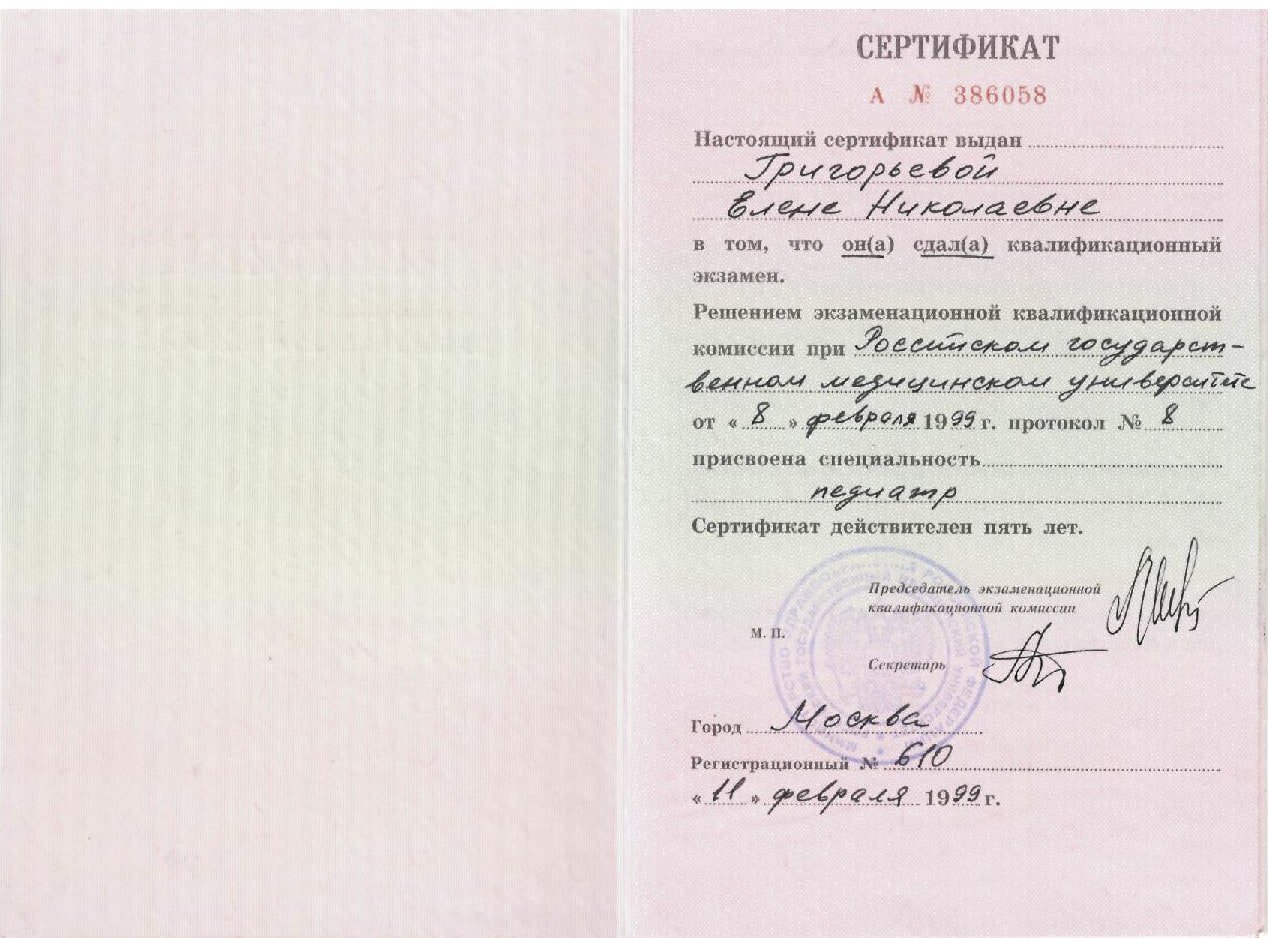 СЕРТИФИКАТ
А № 386058
Настоящий сертификат выдан
Григорьевой
Елене Николаевне
в том, что он(а) сдал(а) квалификационный
экзамен.
Решением экзаменационной квалификационной
комиссии при Российском государст-
венном медицинском университете
от « 8 » февраля 1999 г. протокол № 8
присвоена специальность
педиатр
Сертификат действителен пять лет.
Председатель экзаменационной
квалификационной комиссии
М. П.
Секретарь
Город Москва
Регистрационный № 610
« 11 » февраля 1999 г.